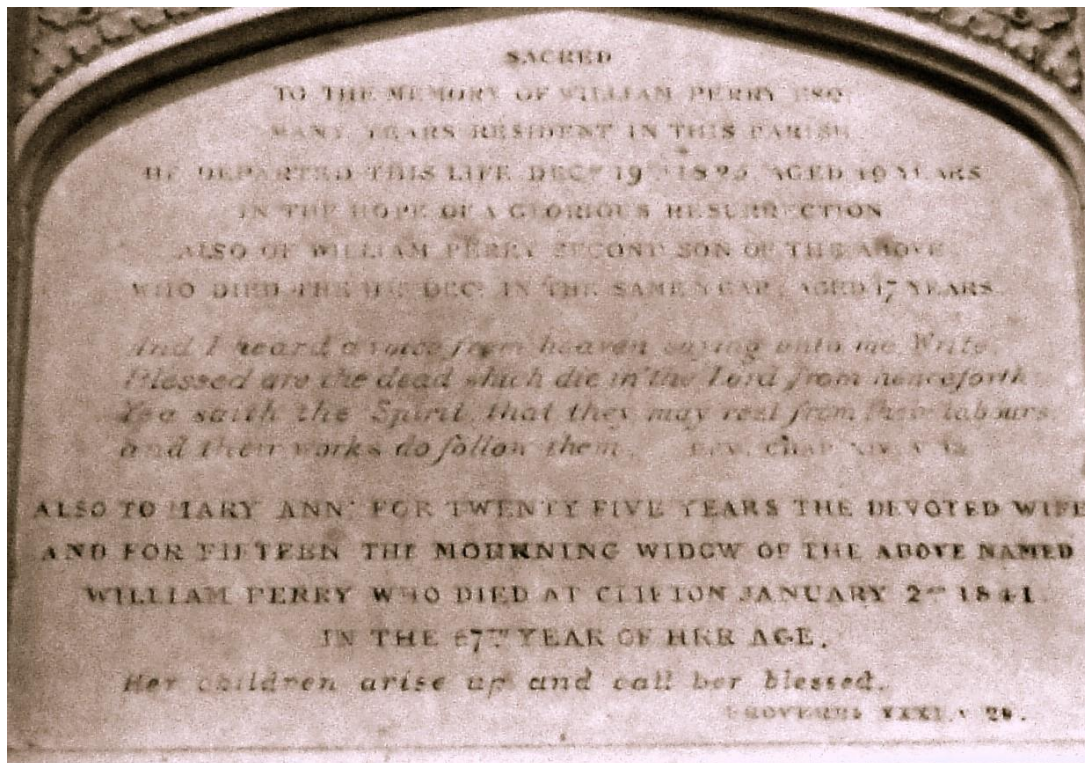 SACRED
TO THE MEMORY OF WILLIAM PERRY ESQ.
MANY YEARS RESIDENT IN THIS PARISH.
HE DEPARTED THIS LIFE DECR 19TH 1825, AGED 49 YEARS
IN THE HOPE OF A GLORIOUS RESURRECTION
ALSO OF WILLIAM PERRY SECOND SON OF THE ABOVE
WHO DIED THE DECR IN THE SAME YEAR, AGED 17 YEARS.
And I heard a voice from heaven saying unto me Write,
Blessed are the dead which die in the Lord from henceforth
Yea saith the Spirit, that they may rest from their labours,
and their works do follow them. REV. CHAP XIV. V. 13.
ALSO TO MARY ANN FOR TWENTY FIVE YEARS THE DEVOTED WIFE
AND FOR FIFTEEN THE MOURNING WIDOW OF THE ABOVE NAMED
WILLIAM PERRY WHO DIED AT CLIFTON JANUARY 2ND 1841.
IN THE 67TH YEAR OF HER AGE.
Her children arise up and call her blessed.
PROVERBS XXXI. V 28.